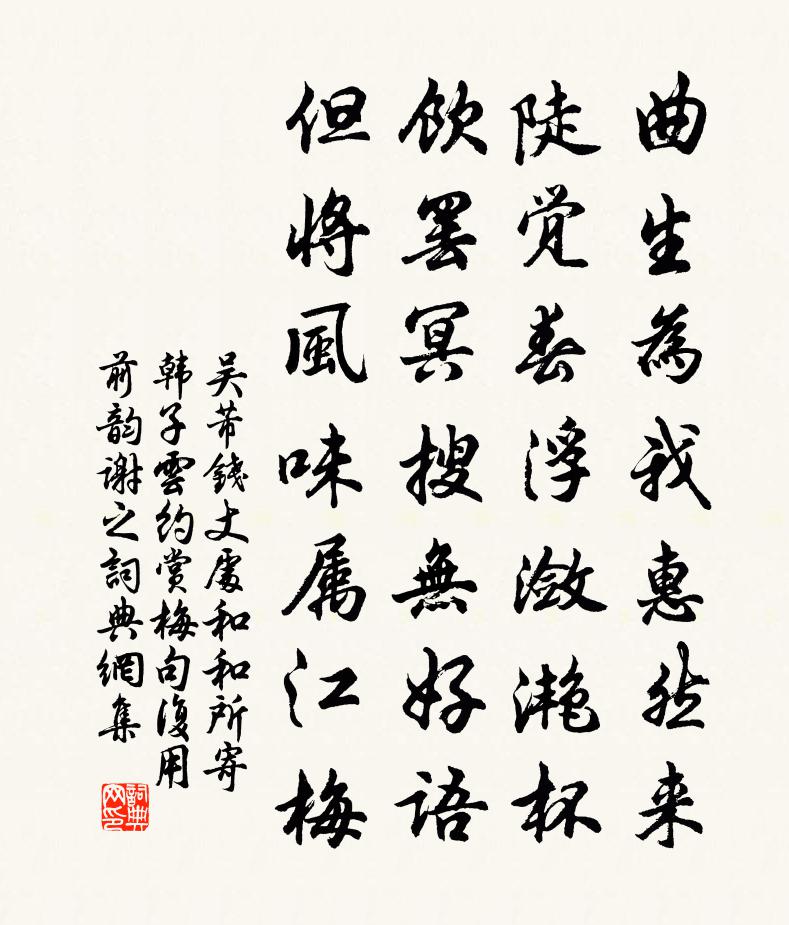 曲生為我惠然来
陡觉春浮潋滟杯
飲罢冥搜無好语
但将風味属江梅
吴芾錢丈處和和所寄
韩子雲约赏梅句復用
前韵谢之詞典網集
詞典网印